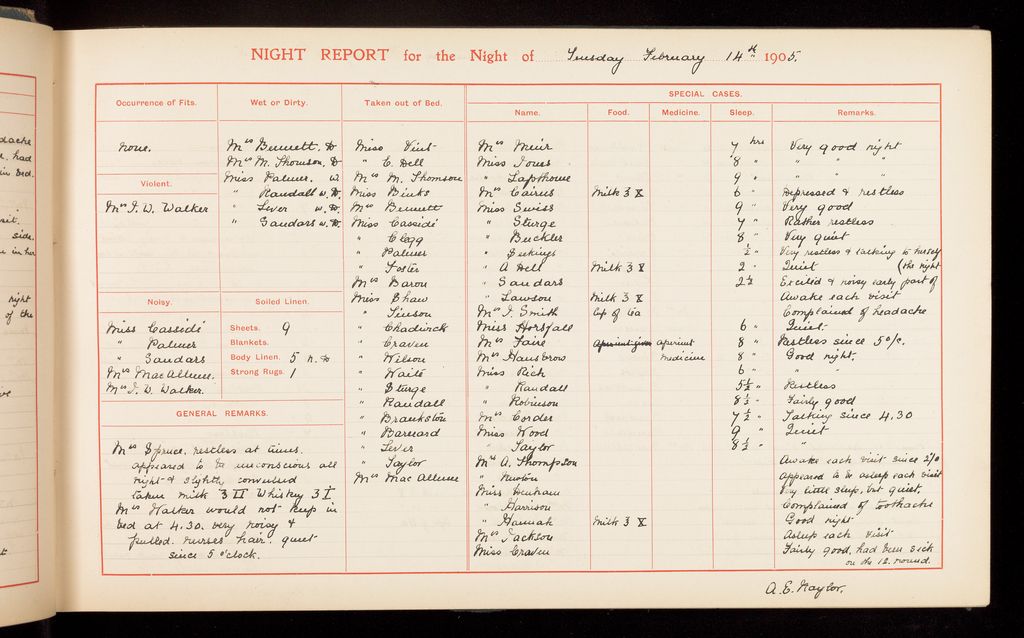 NIGHT REPORT for the Night of Tuesday February 14th 1905.
SPECIAL CASES.
Occurrence of Fits.
none.
Violent.
Mrs J. W. Walker
Noisy.
Miss Cassidi
" Palmer
" Sandars
Mrs MacAllum.
Mrs J. W. Walker.
Wet or Dirty.
Mrs Bennett. D
Mrs M. Thomson. D
Miss Palmer. W
" Randall W. D.
" Lever W. D.
" Sandars W. D.
Soiled Linen.
Sheets. 9
Blankets.
Body Linen. 5 n. D
Strong Rugs. 1
GENERAL REMARKS.
Mrs Spruce, restless at times.
appeared to be unconscious all
night & slightly convulsed
taken milk ℥ II Whiskey ℥ I.
Mrs Walker would not keep in
bed at 4.30. very noisy &
pulled nurses hair. quiet
since 5 o'clock.
Taken out of Bed.
Miss Vint
" C. Dell
Mrs M. Thomson
Miss Binks
Mrs Bennett
Miss Cassidi
" Clegg
" Palmer
" Foster
Mrs Baron
Miss Shaw
" Simson
" Chadwick
" Craven
" Wilson
" Waite
" Sturge
" Randall
" Brankston
" Barnard
" Lever
" Taylor
Mrs Mac Allum
Name.
Food.
Medicine.
Sleep.
Remarks.
Mrs Muir 7 hrs Very good night
Miss Jones 8 " " " "
" Lapthorne 9 " " " "
Mrs Cairns Milk ℥ X 6 " Depressed & restless
Miss Swiss 9 " Very good
" Sturge 7 " Rather restless
" Buckler 8 " Very quiet
" ½ " Very restless & talking to herself
" A Dell Milk ℥ V 2 " Quiet (the night
" Sandars 2½ Excited & noisy early part of
" Lawson Milk ℥ X Awake each visit
Mrs J. Smith Cup of Tea Complained of headache
Miss Horsfall 6 " Quiet
Mrs Faire Aperient given aperient 8 " Restless since 5 o/c.
Mrs Hansbrow medicine 8 " Good night.
Miss Rich 6 " "
" Randall 5½ " Restless
" Robinson 8½ " Fairly good
Mrs Corder 7½ " Talking since 4.30
Miss Wood 9 " Quiet
" Taylor 8½ " "
Mrs A. Thompson Awake each visit since 2/0
" Newton Appeared to be asleep each visit
Miss Denham Very little sleep, but quiet.
" Harrison Complained of toothache
" Hannah Milk ℥ X Good night
Mrs Jackson Asleep each visit
Miss Craven Fairly good, had been sick
on the 12. round.
A. E. Naylor.